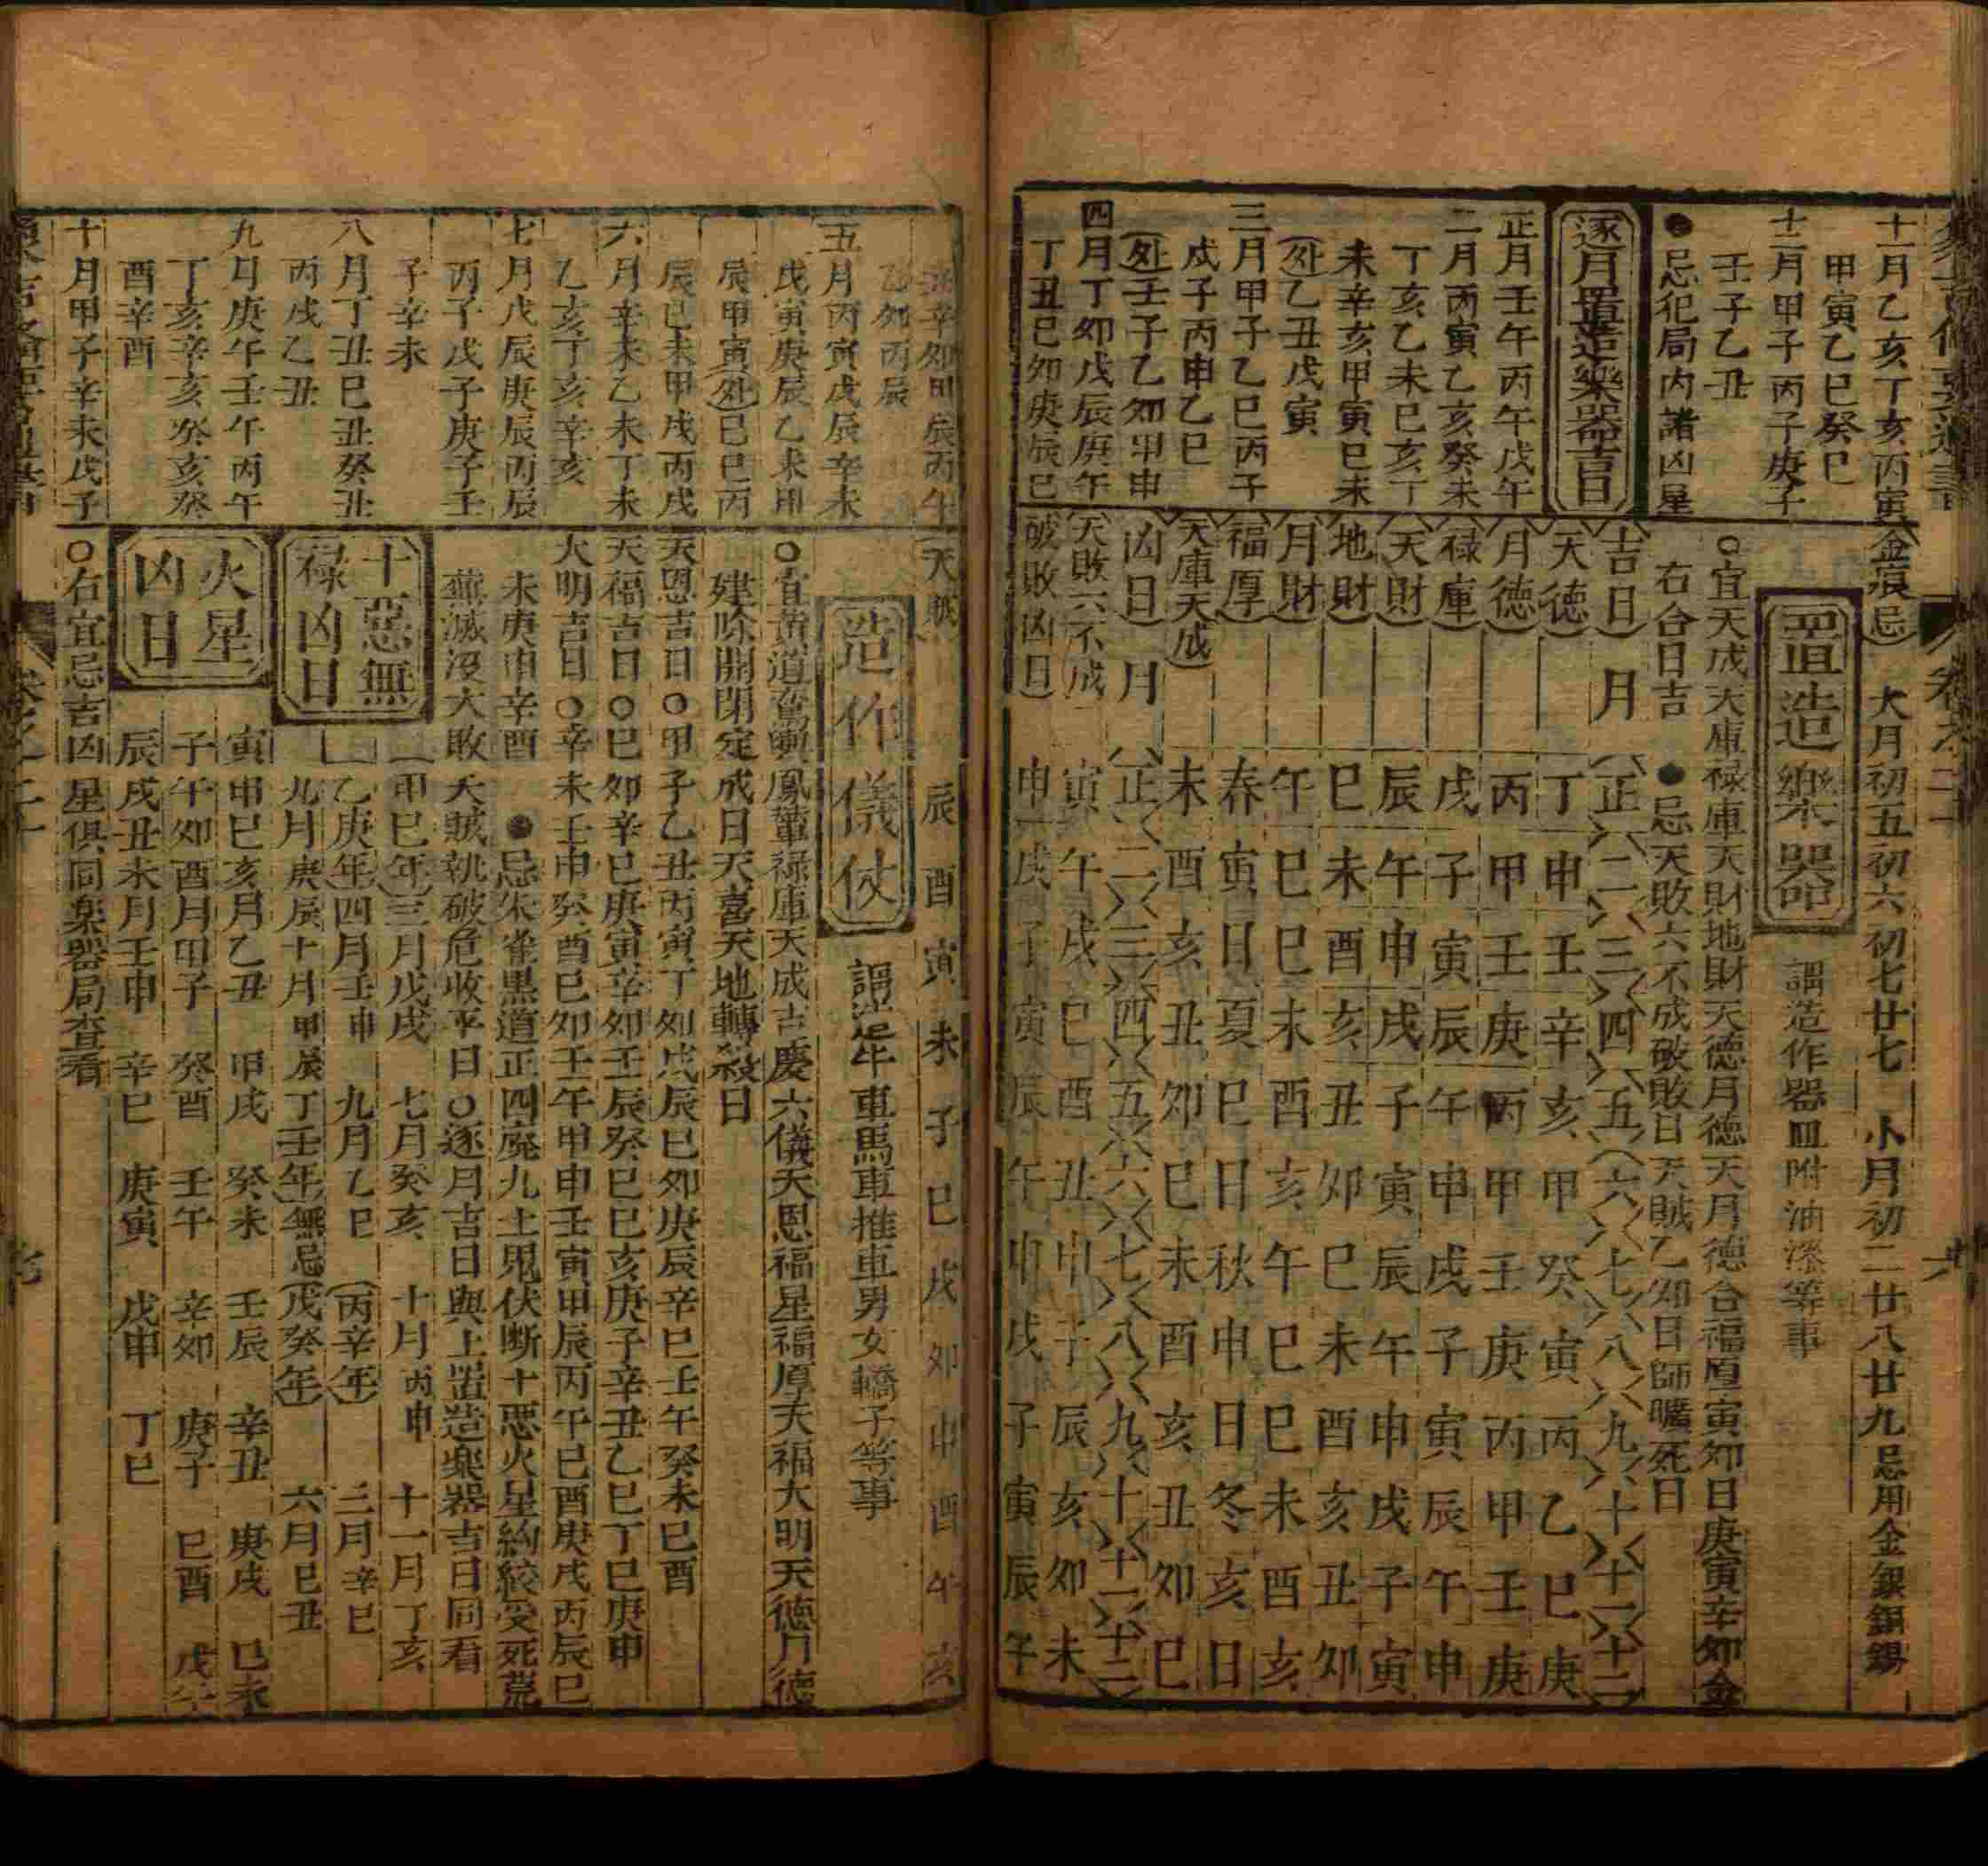 十一月乙亥丁亥丙寅
甲寅乙巳癸巳
十二月甲子丙子庚子
壬子乙丑
●忌犯局内諸凶星
逐月置造樂器吉日
正月壬午丙午戊午
二月丙寅乙亥癸未
丁亥乙未巳亥丁
未辛亥甲寅巳未
外乙丑戊寅
三月甲子乙巳丙子
戊子丙申乙巳
外壬子乙卯甲申
四月丁卯戊辰庚午
丁丑巳卯庚辰巳
金痕忌 大月初五初六初七廿七 小月初二廿八廿九忌用金銀銅錫
置造樂器 謂造作器皿附油漆等事
○宜天成天庫禄庫天財地財天德月德天月德合福厚寅卯日庚寅辛卯金
右合日吉 ●忌天敗六不成破敗日天賊乙卯日師曠死日
吉日 月 正 二 三 四 五 六 七 八 九 十 十一 十二
天德 丁 申 壬 辛 亥 甲 癸 寅 丙 乙 巳 庚
月德 丙 甲 壬 庚 丙 甲 壬 庚 丙 甲 壬 庚
禄庫 戌 子 寅 辰 午 申 戌 子 寅 辰 午 申
天財 辰 午 申 戌 子 寅 辰 午 申 戌 子 寅
地財 巳 未 酉 亥 丑 卯 巳 未 酉 亥 丑 卯
月財 午 巳 巳 未 酉 亥 午 巳 巳 未 酉 亥
福厚 春 寅 日 夏 巳 日 秋 申 日 冬 亥 日
天庫天成 未 酉 亥 丑 卯 巳 未 酉 亥 丑 卯 巳
凶日 月 正 二 三 四 五 六 七 八 九 十 十一 十二
天敗六不成 寅 午 戌 巳 酉 丑 申 子 辰 亥 卯 未
破敗凶日 申 戌 子 寅 辰 午 申 戌 子 寅 辰 午
辛卯甲辰丙午
乙卯丙辰
五月丙寅戊辰辛未
戊寅庚辰乙未甲
辰甲寅外巳巳丙
辰巳未甲戌丙戌
六月辛未乙未丁未
乙亥丁亥辛亥
七月戊辰庚辰丙辰
丙子戊子庚子壬
子辛未
八月丁丑巳丑癸丑
丙戌乙丑
九月庚午壬午丙午
丁亥辛亥癸亥癸
酉辛酉
十月甲子辛未戊子
天賊 辰 酉 寅 未 子 巳 戌 卯 申 酉 午 亥
造作儀仗 車馬車推車男女轎子等事
○宜黄道鸞輿鳳輦禄庫天成吉慶六儀天恩福星福厚天福大明天德月德
建除開閉定成日天喜天地轉殺日
天恩吉日○甲子乙丑丙寅丁卯戊辰巳卯庚辰辛巳壬午癸未巳酉
天福吉日○巳卯辛巳庚寅辛卯壬辰癸巳巳亥庚子辛丑乙巳丁巳庚申
大明吉日○辛未壬申癸酉巳卯壬午甲申壬寅甲辰丙午巳酉庚戌丙辰巳
未庚申辛酉 ●忌朱雀黒道正四廢九土鬼伏断十惡火星鈎絞受死荒
蕪滅没大敗天賊執破危收平日○逐月吉日與上置造樂器吉日同看
十惡無禄凶日
甲巳年三月戊戌 七月癸亥 十月丙申 十一月丁亥
乙庚年四月壬申 九月乙巳 丙辛年 三月辛巳
九月庚辰十月甲辰丁壬年無忌戊癸年 六月巳丑
火星凶日
寅申巳亥月乙丑 甲戌 癸未 壬辰 辛丑 庚戌 巳未
子午卯酉月甲子 癸酉 壬午 辛卯 庚子 巳酉 戊午
辰戌丑未月壬申 辛巳 庚寅 戊申 丁巳
○右宜忌吉凶星俱同樂器局査看